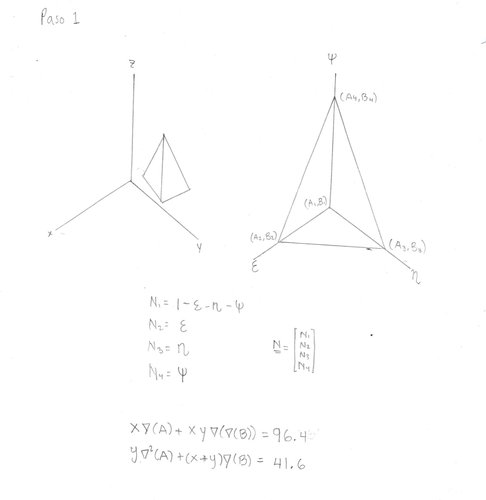 Paso 1
z
x
y
Ψ
(A4,B4)
(A,B)
(A2,B2)
(A3,B3)
ε
η
N1 = 1-ε-η-Ψ
N2 = ε
N3 = η
N4 = Ψ
N = [N1
N2
N3
N4]
x∇(A) + xy∇(∇(B)) = 96.4
y∇²(A) + (x+y)∇(B) = 41.6